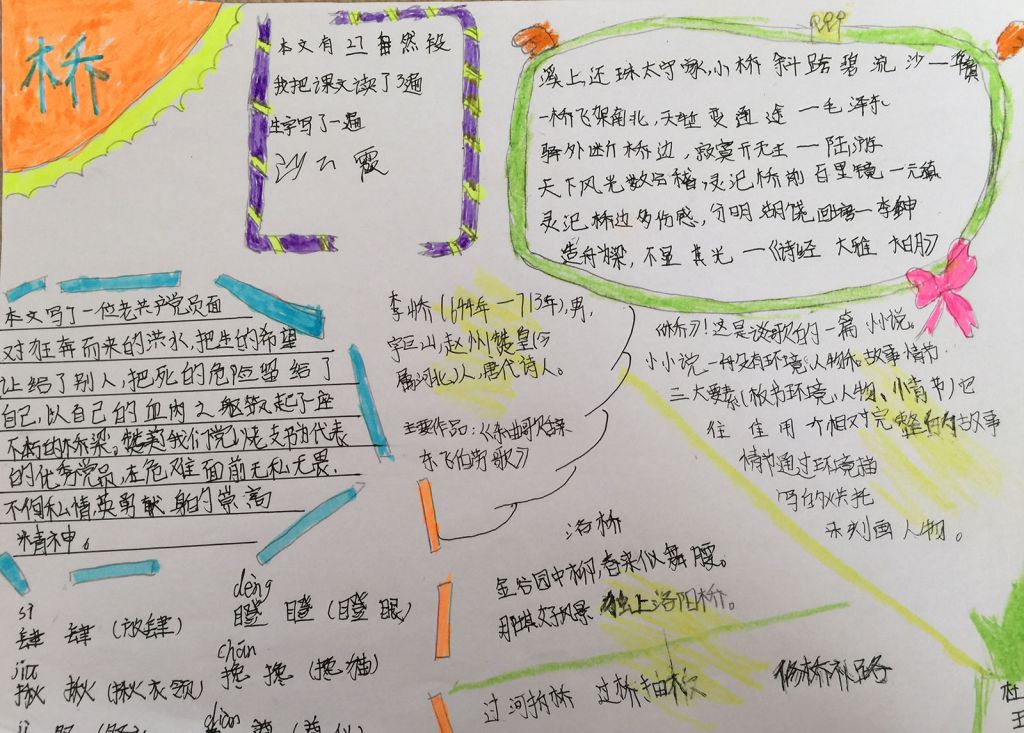 桥
本文有27自然段
我把课文读了3遍
生字写了一遍
溪上还珠太守家,小桥斜跨碧流沙一
一桥飞架南北,天堑变通途一毛泽东
驿外断桥边,寂寞开无主一陆游
天下风光数会稽,灵汜桥前百里镜一元稹
灵汜桥边多伤感,分明湖饶回塘一李绅
造舟为梁,不显其光一《诗经 大雅
本文写了一位老共产党员面
对狂奔而来的洪水,把生的希望
让给了别人,把死的危险留给了
自己,以自己的血肉之躯筑起了座
不朽的桥梁。赞美我们党以老支书为代表
的优秀党员,在危难面前无私无畏,
不徇私情,英勇献身的崇高
精神。
李峤(644年一713年),男,
字巨山,赵州
属河北)人,唐代诗人。
主要作品:《杂曲歌辞
东飞伯劳歌》
《桥》!这是谈歌的一篇小说。
小小说一种没有环境、人物和故事情节
三大要素(故环境、人物、情节)它
往往用个相对完整的故事
情节通过环境描
写的烘托
来刻画人物。
洛桥
金谷园中柳,春来似舞腰。
那堪好风景 独上洛阳桥。
过河拆桥 过桥抽板 修桥补路
sì
肆 肆 (放肆)
揪 揪 (揪衣领)
dèng
瞪 瞪 (瞪眼)
chān
搀 搀 (搀扶)
杜
王